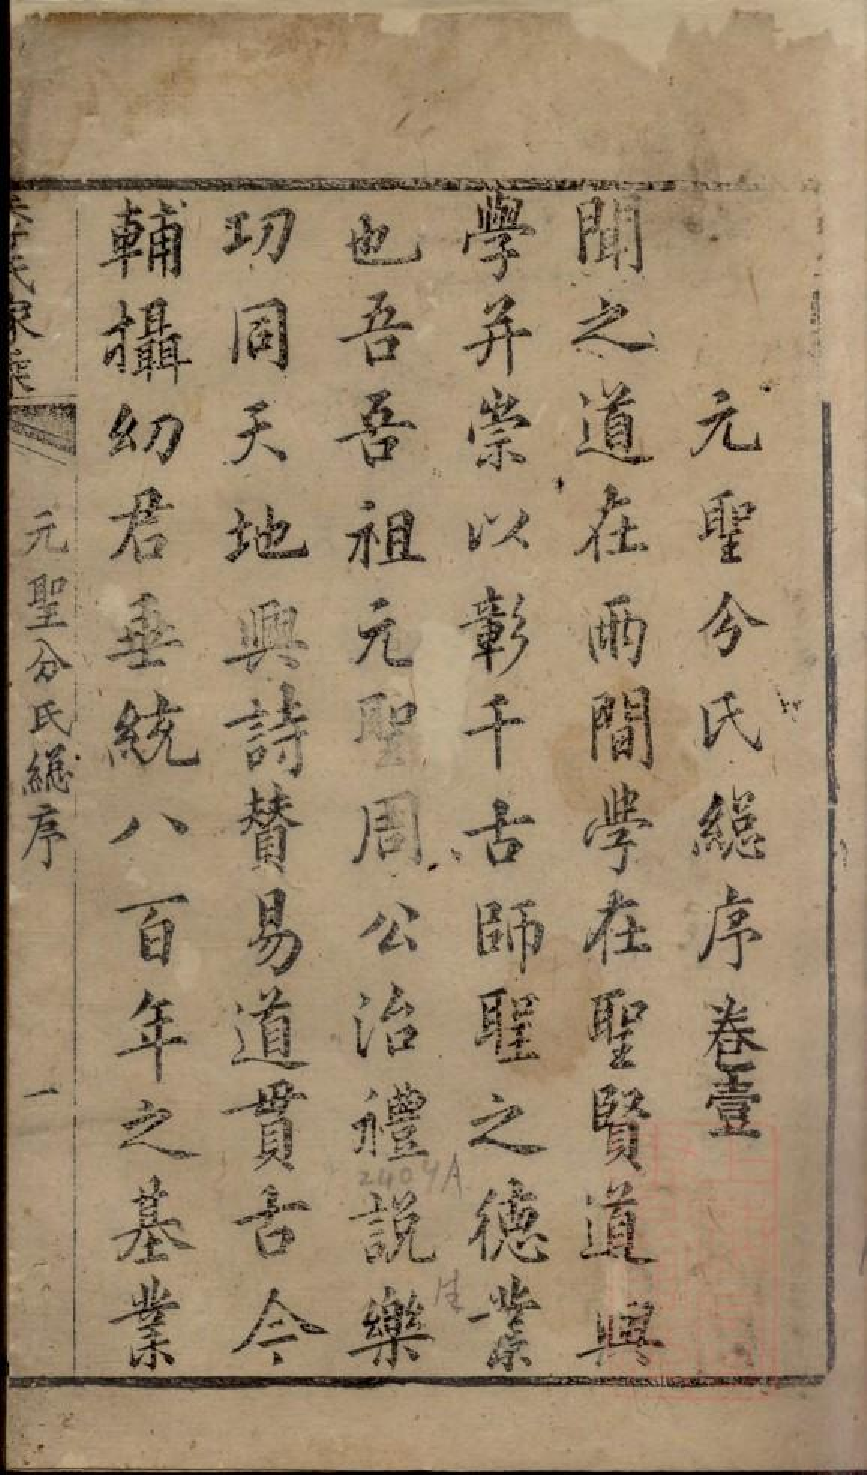 元聖分氏緫序卷壹
聞之道在兩間學在聖賢道與
學并崇以彰千古師聖之德業
也吾吾祖元聖周公治禮説樂
功同天地興詩賛易道貫古今
輔攝幼君垂統八百年之基業
氏家乘
元聖分氏緫序
一
2404A